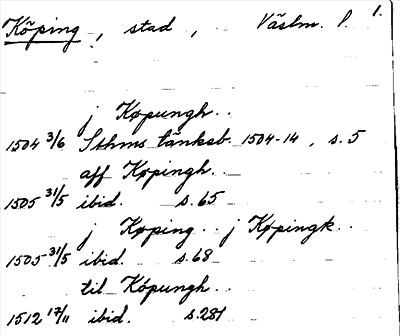 Köping, stad, Västm. l. 1.
j Køpungh..
1504 3/6 Sthms tänkeb. 1504-14, s. 5
aff Køpingh..
1505 31/5 ibid. s. 65
j Køping.. j Køpingk..
1505 31/5 ibid. s. 68
til Køpungh..
1512 17/11 ibid. s. 281